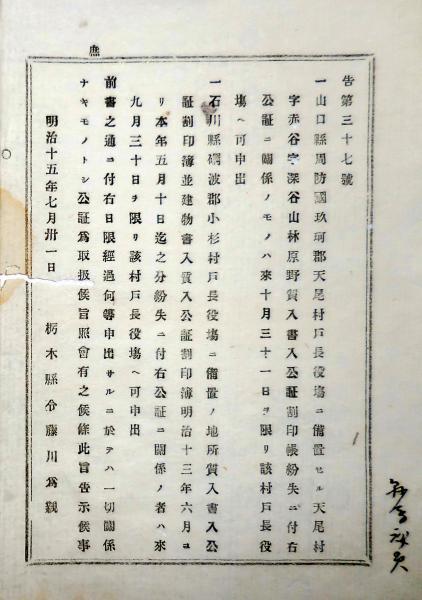 庶
告第三十七號
一山口縣周防國玖珂郡天尾村戸長役塲ニ備置セル天尾村
字赤谷字深谷山林原野質入書入公証割印帳紛失ニ付右
公証ニ關係ノモノハ來十月三十一日ヲ限リ該村戸長役
塲ヘ可申出
一石川縣礪波郡小杉村戸長役塲ニ備置ノ地所質入書入公
証割印簿並建物書入質入公証割印簿明治十三年六月ヨ
リ本年五月十日迄之分紛失ニ付右公証ニ關係ノ者ハ來
九月三十日ヲ限リ該村戸長役塲ヘ可申出
前書之通ニ付右日限經過何等申出サルニ於テハ一切關係
ナキモノトシ公証爲取扱候旨照會有之候條此旨告示候事
明治十五年七月卅一日 栃木縣令藤川爲親